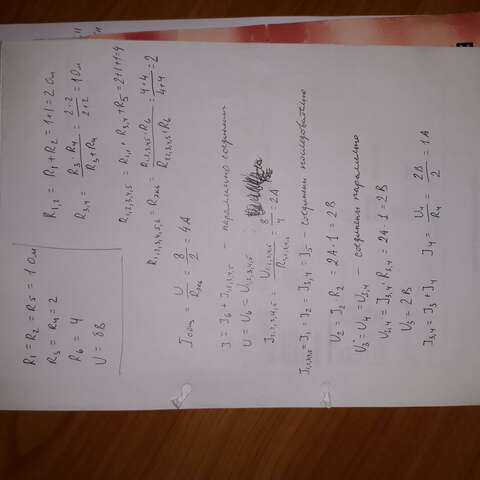 R₁ = R₂ = R₅ = 1 Ом
R₃ = R₄ = 2
R₆ = 4
U = 8В
R₁,₂ = R₁ + R₂ = 1+1 = 2 Ом
R₃,₄ = R₃ · R₄ / R₃ + R₄ = 2·2 / 2+2 = 1 Ом
R₁,₂,₃,₄,₅ = R₁,₂ + R₃,₄ + R₅ = 2+1+1=4
R₁,₂,₃,₄,₅,₆ = Rобщ = R₁,₂,₃,₄,₅ · R₆ / R₁,₂,₃,₄,₅ + R₆ = 4·4 / 4+4 = 2
Iобщ = U / Rобщ = 8 / 2 = 4A
I = I₆ + I₁,₂,₃,₄,₅ – параллельно соединены
U = U₆ = U₁,₂,₃,₄,₅
I₁,₂,₃,₄,₅ = U₁,₂,₃,₄,₅ / R₁,₂,₃,₄,₅ = 8 / 4 = 2A
I₁,₂,₃,₄,₅ = I₁ = I₂ = I₃,₄ = I₅ – соединены последовательно
U₂ = I₂ · R₂ = 2A · 1 = 2В
U₃ = U₄ = U₃,₄ – соединены параллельно
U₃,₄ = I₃,₄ · R₃,₄ = 2A · 1 = 2В
U₃ = 2В
I₃,₄ = I₃ + I₄ I₄ = U₄ / R₄ = 2В / 2 = 1A